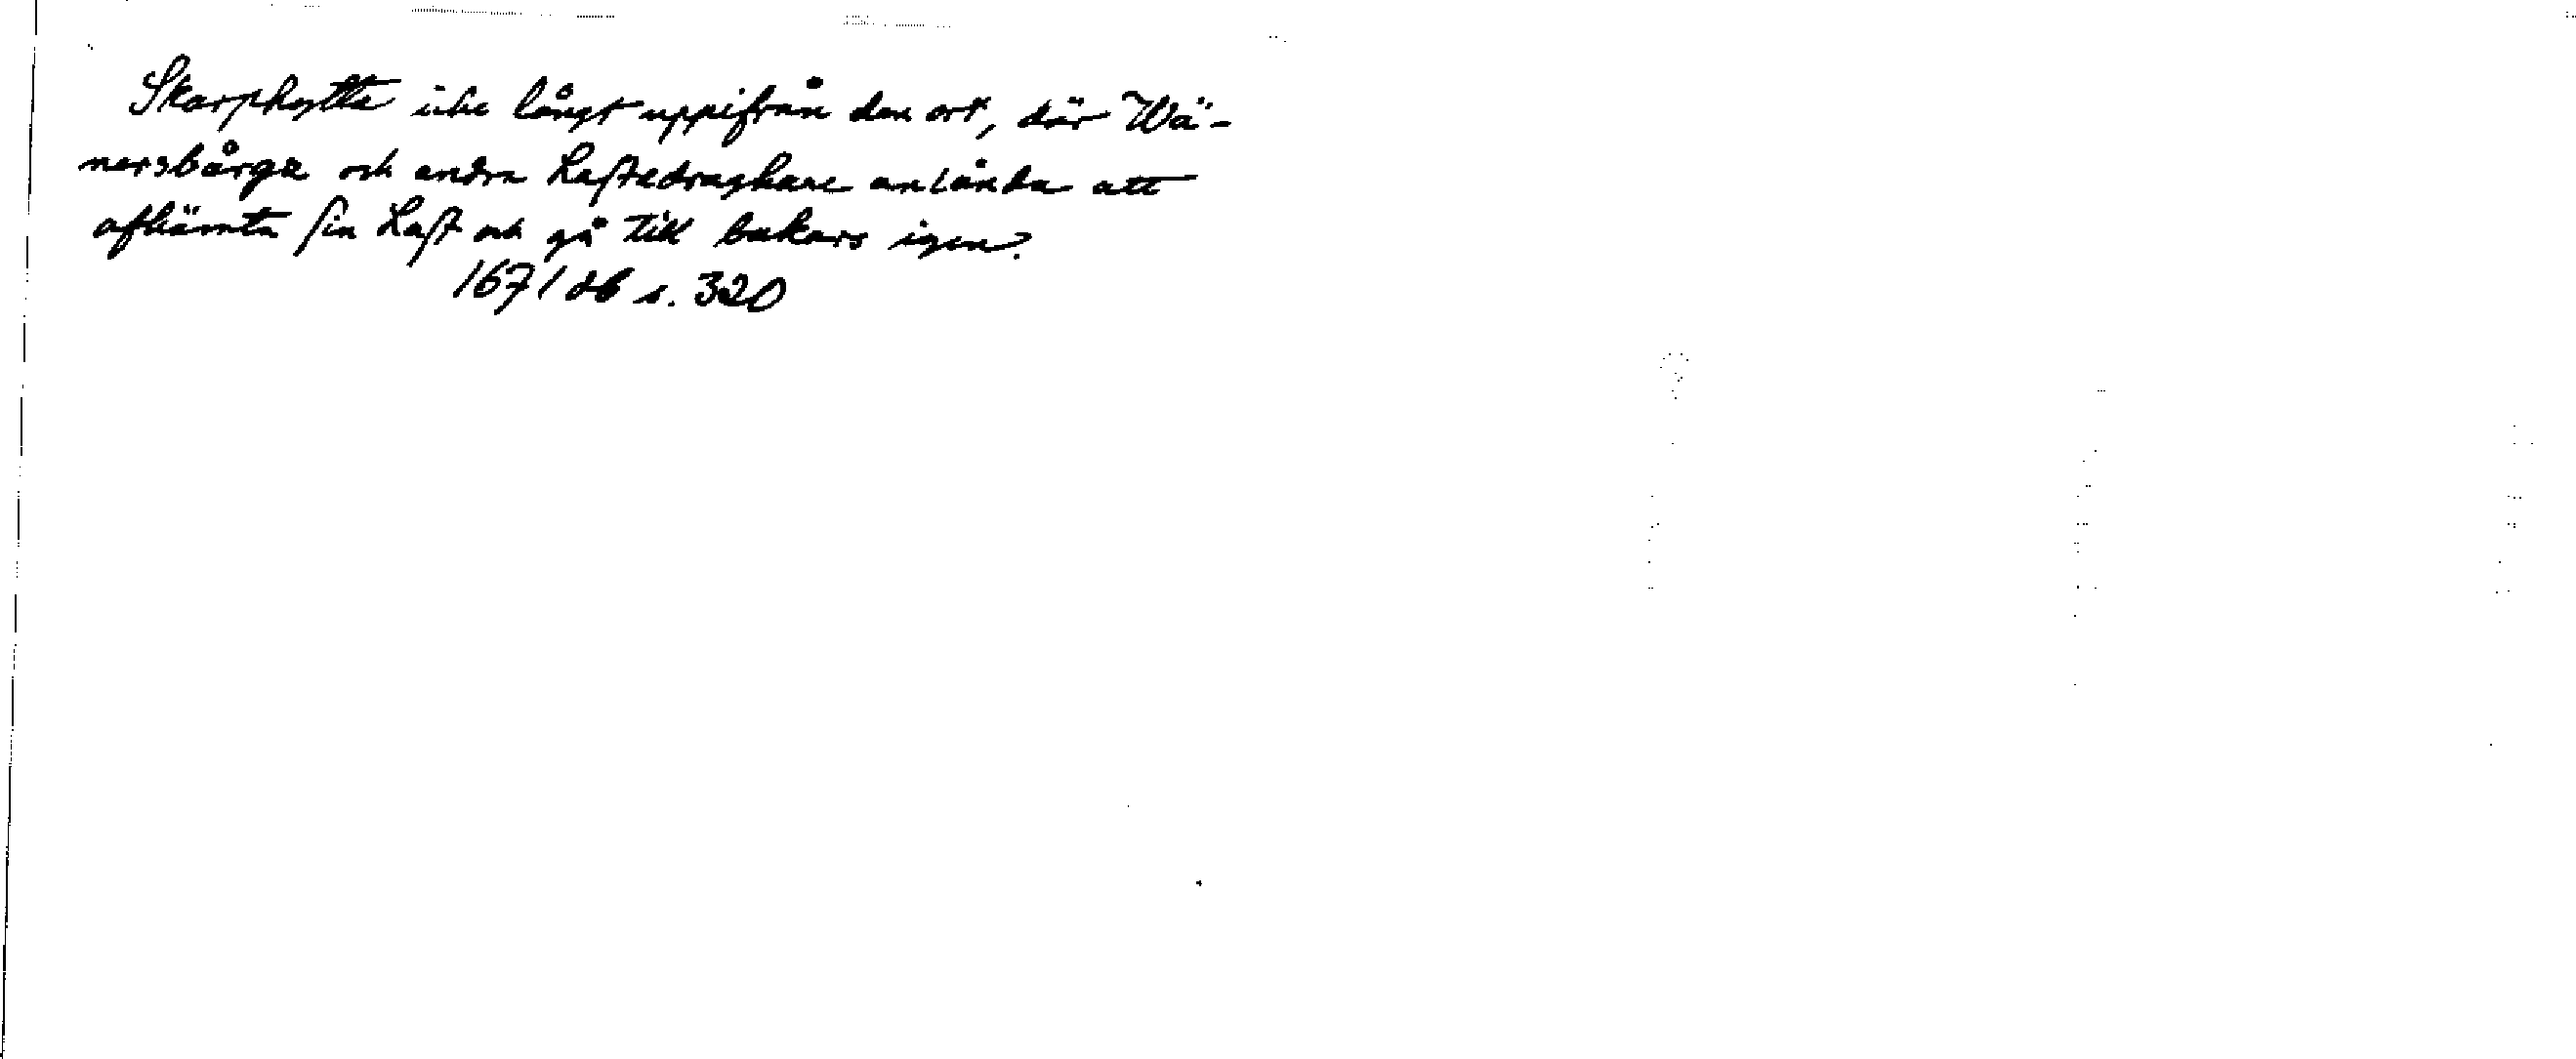 Skarphytta icke långt uppifrån den ort, där Wä-
nersbårga och andra Laſtedragkare anlända att
afhämta ſin Laſt och gå till bakars igen?
1671 db s. 320